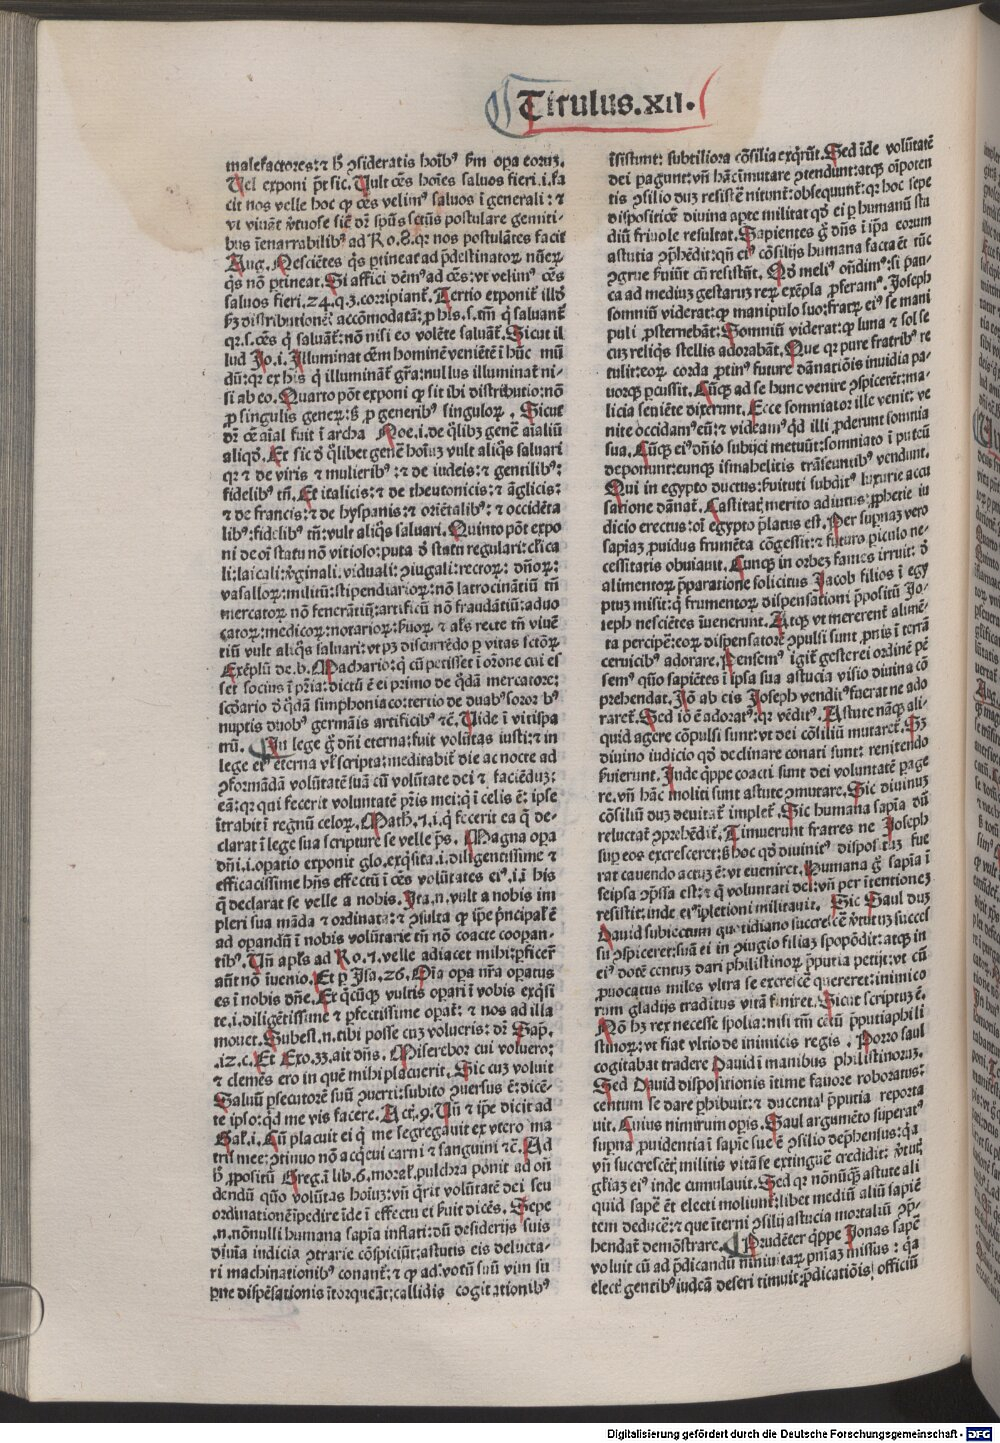 Titulus.xii.
malefactores: ⁊ hͦ ꝯsideratis hoībꝰ ẜm opa eoruꝫ.
Uel exponi p̄t sic. Uult oēs hoīes saluos fieri.i.fa
cit nos velle hoc ꝙ oēs velimꝰ saluos ī generali: ⁊
vt viuāt v̓tuose sic̄ dr̄ spūs sctūs postulare gemiti-
bus īenarrabilibꝰ ad Ro.8.qꝛ nos postulātes facit
Aug. Nesciētes q̄s ꝑtineat ad p̄destinatoꝝ nūeꝝ
q̄s nō ꝑtineat. Si affici dēmꝰ ad oēs: vt velimꝰ oēs
saluos fieri.24.q.3.corripiant᷑. Tertio exponit᷑ illḋ
ẜꝫ distributionē accōmodatā: ꝓ his.s.tm̄ q̇ saluant᷑
qꝛ.s.oēs q̇ saluāt᷑: nō nisi eo volēte saluāt᷑. Sicut il
lud Jo.i. Illuminat oēm hominē veniētē ī hūc mū
dū: qꝛ ex his q̇ illumināt᷑ gr̄a: nullus illuminat᷑ ni-
si ab eo. Quarto pōt exponi ꝙ sit ibi distributio: nō
ꝓ singulis geneꝝ: sꝫ ꝓ generibꝰ singuloꝝ. Sicut
dr̄ oē aīal fuit ī archa Noe.i.de q̇libꝫ genē aīaliū
aliqḋ. Et sic ḋ q̇libet genē hoīuꝫ vult aliq̄s saluari
qꝛ ⁊ de viris ⁊ mulieribꝰ: ⁊ de iudeis: ⁊ gentilibꝰ:
fidelibꝰ tn̄. Et italicis: ⁊ de theutonicis: ⁊ āglicis:
⁊ de francis: ⁊ de hyspanis: ⁊ oriētalibꝰ: ⁊ occidēta
libꝰ: fidelibꝰ tn̄: vult aliq̄s saluari. Quinto pōt expo
ni de oī statu nō vitioso: puta ḋ statu regulari: cl̄ica
li: laicali: v̓ginali. viduali: ꝯiugali: rectoꝝ: dn̄oꝝ:
vasalloꝝ: militū: stipendiarioꝝ: nō latrocinātiū tn̄
mercatoꝝ nō fenerātiū: artificū nō fraudātiū: aduo
catoꝝ: medicoꝝ: notarioꝝ: ẜuoꝝ ⁊ al̓s recte tn̄ viuē
tiū vult aliq̄s saluari: vt pꝫ discurrēdo ꝑ vitas sctōꝝ
Exēplū de.b. Machario: q̇ cū petisset ī or̄one cui es
set socius ī pr̄ia: dictū ē ei primo de q̇dā mercatore:
scḋario ḋ q̇dā simphonia co: tertio de duabꝰ soror bꝰ
nuptis duobꝰ germāis artificibꝰ ⁊c̄. Uide ī vitispa
trū. In lege ḡ dn̄i eterna: fuit volūtas iusti: ⁊ in
lege eiꝰ eterna vl̓ scripta: meditabit᷑ die ac nocte ad
ꝯformādā volūtatē suā cū volūtate dei ⁊ faciēduꝫ:
eā: qꝛ qui fecerit voluntatē pr̄is mei: q̇ ī celis ē: ipse
ītrabit ī regnū celoꝝ. Math.7.i.q̇ fecerit ea q̄ de-
clarat ī lege sua scripture se velle p̄s. Magna opa
dn̄i.i.opatio exponit glo.exq̇sita.i.diligentissime ⁊
efficacissime hn̄s effectū ī oēs volūtates eiꝰ.i.ī his
q̄ declarat se velle a nobis. Ita.n.vult a nobis im
pleri sua māda ⁊ ordinata: ⁊ ꝯsulta ꝙ ip̄e p̄ncipal̓ ē
ad opandū ī nobis volūtarie tn̄ nō coacte coopan-
tibꝰ. Un̄ apl̓s ad Ro.7.velle adiacet mihi: ꝑficer̄
aūt nō īuenio. Et ꝑ Isa.26. Oīa opa nr̄a opatus
es ī nobis dn̄e. Et q̇cūqꝫ vultis opari ī vobis exq̇si
te.i.diligētissime ⁊ ꝑfectissime opat᷑: ⁊ nos ad illa
mouet. Subest.n.tibi posse cuꝫ volueris: dr̄ Sap.
.12.c. Et Exo.33.ait dn̄s. Miserebor cui voluero:
⁊ clemēs ero in quē mihi placuerit. Sic cuꝫ voluit
Saluū ꝑsecutorē suū ꝯuerti: subito ꝯuersus ē: dicē-
te ipso: qḋ me vis facere. Act.9. Un̄ ⁊ ip̄e dicit ad
Gal̓.i. Cū placuit ei q̇ me segregauit ex vtero ma
tris mee: ꝯtinuo nō acq̇eui carni ⁊ sanguini ⁊c̄. Ad
hͦ ꝓpositū Grego.ī lib.6.moral̓.pulchra ponit ad oñ
dendū quō volūtas hoīuꝫ: vn̄ q̄rit volūtatē dei seu
ordinationē īpedire īde ī effectu ei ẜuit dicēs. Sepe
.n.nōnulli humana sapīa inflati: dū desiderijs suis
diuīa iudicia ꝯtrarie cōspiciūt: astutis eis delucta-
ri machinationibꝰ conant᷑: ⁊ ꝙ ad votū suū vim su
ꝑne dispēsationis ītorqueāt: callidis cogitationibꝰ
īsistunt: subtiliora cōsilia exq̇rūt. Sed īde volūtatē
dei ꝑagunt: vn̄ hāc īmutare ꝯtendunt: atqꝫ oīpoten
tis ꝯsilio duꝫ resistē nitunt᷑: obsequunt᷑: qꝛ hoc sepe
dispositioē diuina apte militat qḋ ei ꝑ humanū stu
diū friuole resultat. Sapientes ḡ dn̄s ī ip̄a eorum
astutia ꝯp̄hēdit: qn̄ eiꝰ cōsilijs humana facta ⁊ tūc
ꝯgrue ẜuiūt cū resistūt. Qḋ meliꝰ on̄dimꝰ: si pau-
ca ad mediuꝫ gestaruꝫ reꝝ exēpla ꝓferamꝰ. Joseph
somniū viderat: ꝙ manipulo suo: fratꝝ eiꝰ se mani
puli ꝓsternebāt: Somniū viderat: ꝙ luna ⁊ sol se
cuꝫ reliq̇s stellis adorabāt. Que qꝛ pure fratribꝰ re
tulit: eoꝝ corda ꝓtinꝰ future dānatiōis inuidia pa-
uorqꝫ ꝑcussit. Cūqꝫ ad se hunc venire ꝯspicerēt: ma-
licia seuiēte dixerunt. Ecce somniator ille venit: ve
nite occidamꝰ eū: ⁊ videamꝰ qḋ illi ꝓderunt somnia
sua. Cūqꝫ eiꝰ dn̄io subijci metuūt: somniato ī puteū
deponunt: eumqꝫ ismahelitis trāseuntibꝰ vendunt.
Qui in egypto ductus: ẜuituti subditꝰ luxurie accu
satione dānat᷑. Castitat᷑ merito adiutus: ꝓphetie iu
dicio erectus: oī egypto p̄latus est. Per suꝑnaꝫ vero
sapīaꝫ ꝓuidus frumēta cōgessit: ⁊ futuro ꝑiculo ne-
cessitatis obuiauit. Cunqꝫ in orbeꝫ fames irruit: ḋ
alimentoꝝ p̄paratione solicitus Jacob filios ī egy
ptuꝫ misit: q̇ frumentoꝝ dispensationi p̄positū Jo-
seph nesciētes īuenerunt. Atqꝫ vt mererent᷑ alimē-
ta percipē: eoꝝ dispensatorē ꝯpulsi sunt ꝓnis ī terrā
ceruicibꝰ adorare. Pensemꝰ igit᷑ gestę rei ordinē pē
semꝰ quō sapiētes ī ipsa sua astucia visio diuina cō
prehendat. Jō ab eis Joseph venditꝰ fuerat ne ado
raret᷑. Sed iō ē adoratꝰ: qꝛ vēditꝰ. Astute nāqꝫ ali-
quid agere cōpulsi sunt: vt dei cōsiliū mutaret᷑. Sꝫ
diuino iudicio qḋ declinare conati sunt: renitendo
ẜuierunt. Inde q̄ppe coacti sunt dei voluntatē ꝑage
re. vn̄ hāc moliti sunt astute ꝯmutare. Sic diuinuꝫ
cōsiliū duꝫ deuitat᷑ implet᷑. Sic humana sapīa dū
reluctat᷑ ꝯprehēdit᷑. Timuerunt fratres ne Joseph
suꝑ eos excresceret: sꝫ hoc qḋ diuinitꝰ dispositūꝫ fue
rat cauendo actuꝫ ē: vt eueniret. Humana ḡ sapīa ī
seipsa ꝯp̄ssa est: ⁊ q̄ voluntati dei: vn̄ per ītentioneꝫ
resistit: inde eiꝰ īpletioni militauit. Sic Saul duꝫ
Dauid subiectum quotidiano succrescē v̓tutuꝫ succes
su ꝯspiceret: suā ei in ꝯiugio filiaꝫ spopōdit: atqꝫ in
eiꝰ dotē centuꝫ dari philistinoꝝ p̄putia petijt: vt cū
ꝓuocatus miles vltra se excrescē quereret: inimico
rum gladijs traditus vitā finiret. Sicut scriptuꝫ ē.
Nō hꝫ rex necesse spolia: nisi tm̄ cētū p̄putia phili
stinoꝝ: vt fiat vltio de inimicis regis. Porro saul
cogitabat tradere Dauid ī manibus philistinoruꝫ.
Sed Dauid dispositionis ītime fauore roboratus:
centum se dare ꝓhibuit: ⁊ ducenta p̄putia reporta
uit. Cuius nimirum opis. Saul argumēto superatꝰ
supna ꝓuidentia ī sapīe sue ē ꝯsilio dep̄hensus: q̇a
vn̄ succrescēt᷑ militis vitā se extinguē credidit: v̓tut᷑
gl̓iaꝫ eiꝰ inde cumulauit. Sed qꝛ nōnūq̄ꝫ astute ali
quid sapē et electi moliunt᷑: libet mediū aliū sapiē
tem deducē: ⁊ que īterni ꝯsilij astucia mortaliū ꝯp̄-
hendat᷑ demōstrare. Prudēter q̄ppe Jonas sapē
voluit cū ad p̄dicandū niniuitaꝝ pn̄iaꝫ missus: q̇a
elect᷑ gentibꝰ iudeā deseri timuit: p̄dicatiōis officiū
Digitalisierung gefördert durch die Deutsche Forschungsgemeinschaft - DFG